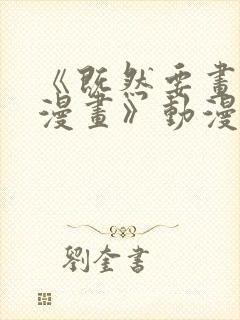 《既然要畫
漫畫》動漫
劉奎書